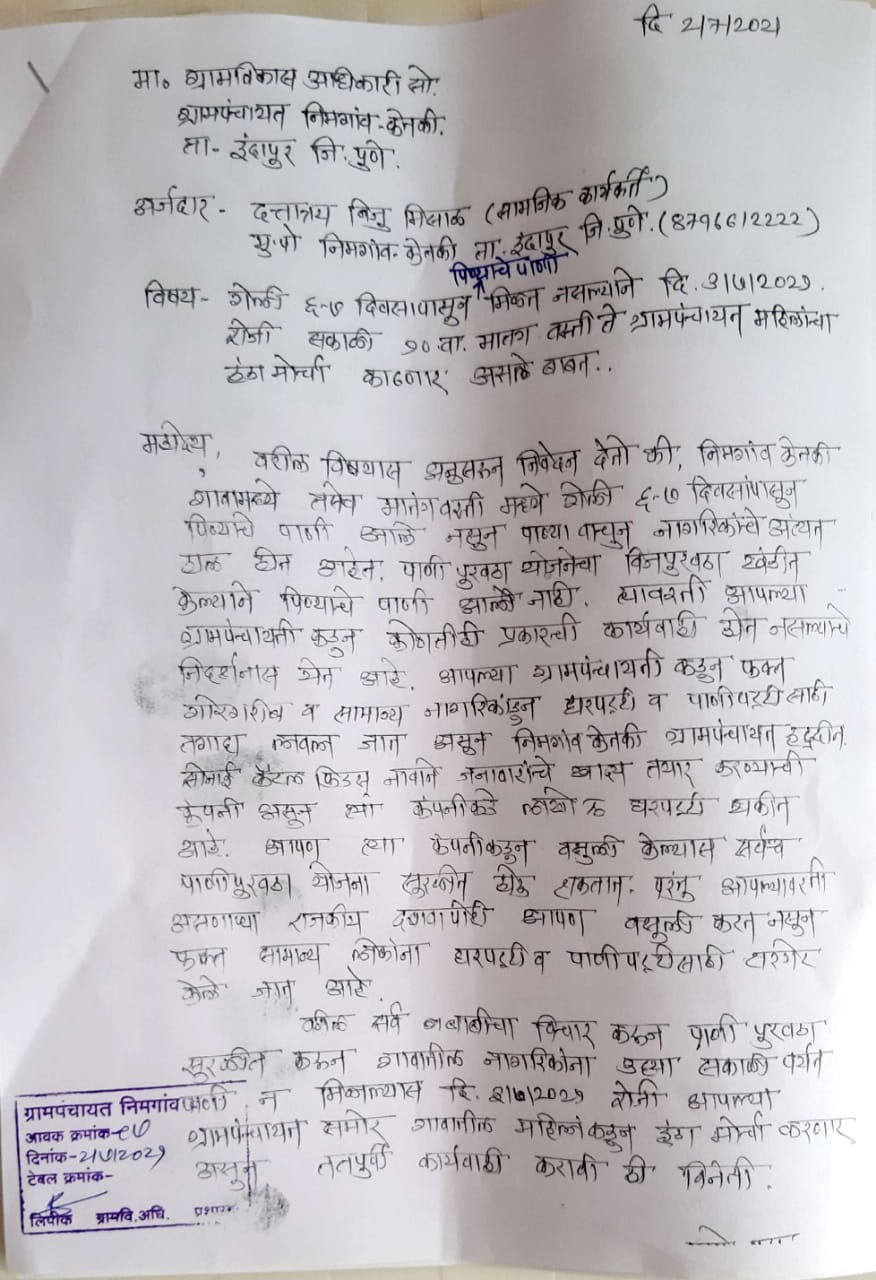 दि 2/7/2021
मा. ग्रामविकास अधिकारी सो.
ग्रामपंचायत निमगांव-केतकी.
ता- इंदापुर जि. पुणे.
अर्जदार - दत्तात्रय मिसाळ (सामजिक कार्यकर्ता)
मु.पो निमगांव-केतकी ता. इंदापुर जि. पुणे. (8796612222)
पिण्याचे पाणी
विषय- गेली ६-७ दिवसापासुन मिळत नसल्याने दि. ३/७/२०२१.
रोजी सकाळी १० वा. मातंग वस्ती ते ग्रामपंचायत महिलांचा
हंडा मोर्चा काढणार असले बाबत..
महोदय,
वरील विषयास अनुसरुन निवेदन देतो की, निमगांव केतकी
गावामध्ये तसेच मातंगवस्ती मध्ये गेली ६-७ दिवसांपासुन
पिण्याचे पाणी आले नसुन पाण्या वाचुन नागरिकांचे अत्यंत
हाल होत आहेत. पाणी पुरवठा योजनेचा विजपुरवठा खंडीत
केल्याने पिण्याचे पाणी आलेले नाही. त्यावरती आपल्या
ग्रामपंचायती कडुन कोणतीही प्रकारची कार्यवाही होत नसल्याचे
निदर्शनास येत आहे. आपल्या ग्रामपंचायती कडुन फक्त
गोरगरीब व सामान्य नागरिकांकडुन घरपट्टी व पाणीपट्टीसाठी
तगादा लावला जात असुन निमगांव केतकी ग्रामपंचायत हद्दीत.
सोनाई कॅटल फिडस् नावाने जनावरांचे खाद्य तयार करण्याची
कंपनी असुन त्या कंपनीकडे लाखो रु घरपट्टी थकीत
आहे. आपण त्या कंपनीकडुन वसुली केल्यास सर्वच
पाणीपुरवठा योजना सुरळीत होऊ शकतात. परंतु आपल्यावरती
असणाऱ्या राजकीय दबावापोटी आपण वसुली करत नसुन
फक्त सामान्य लोकांना घरपट्टी व पाणीपट्टीसाठी टारगेट
केले जात आहे.
वरील सर्व बाबींचा विचार करून पाणी पुरवठा
सुरळीत करून गावातील नागरिकांना उद्या सकाळी पर्यंत
पाणी न मिळाल्यास दि. ३/७/२०२१ रोजी आपल्या
ग्रामपंचायत समोर गावातील महिलांकडुन हंडा मोर्चा करणार
असुन ततपुर्वी कार्यवाही करावी ही विनंती.
ग्रामपंचायत निमगांव
आवक क्रमांक-
दिनांक-2/७/२०२१
टेबल क्रमांक-
लिपीक ग्रामवि.अधि.